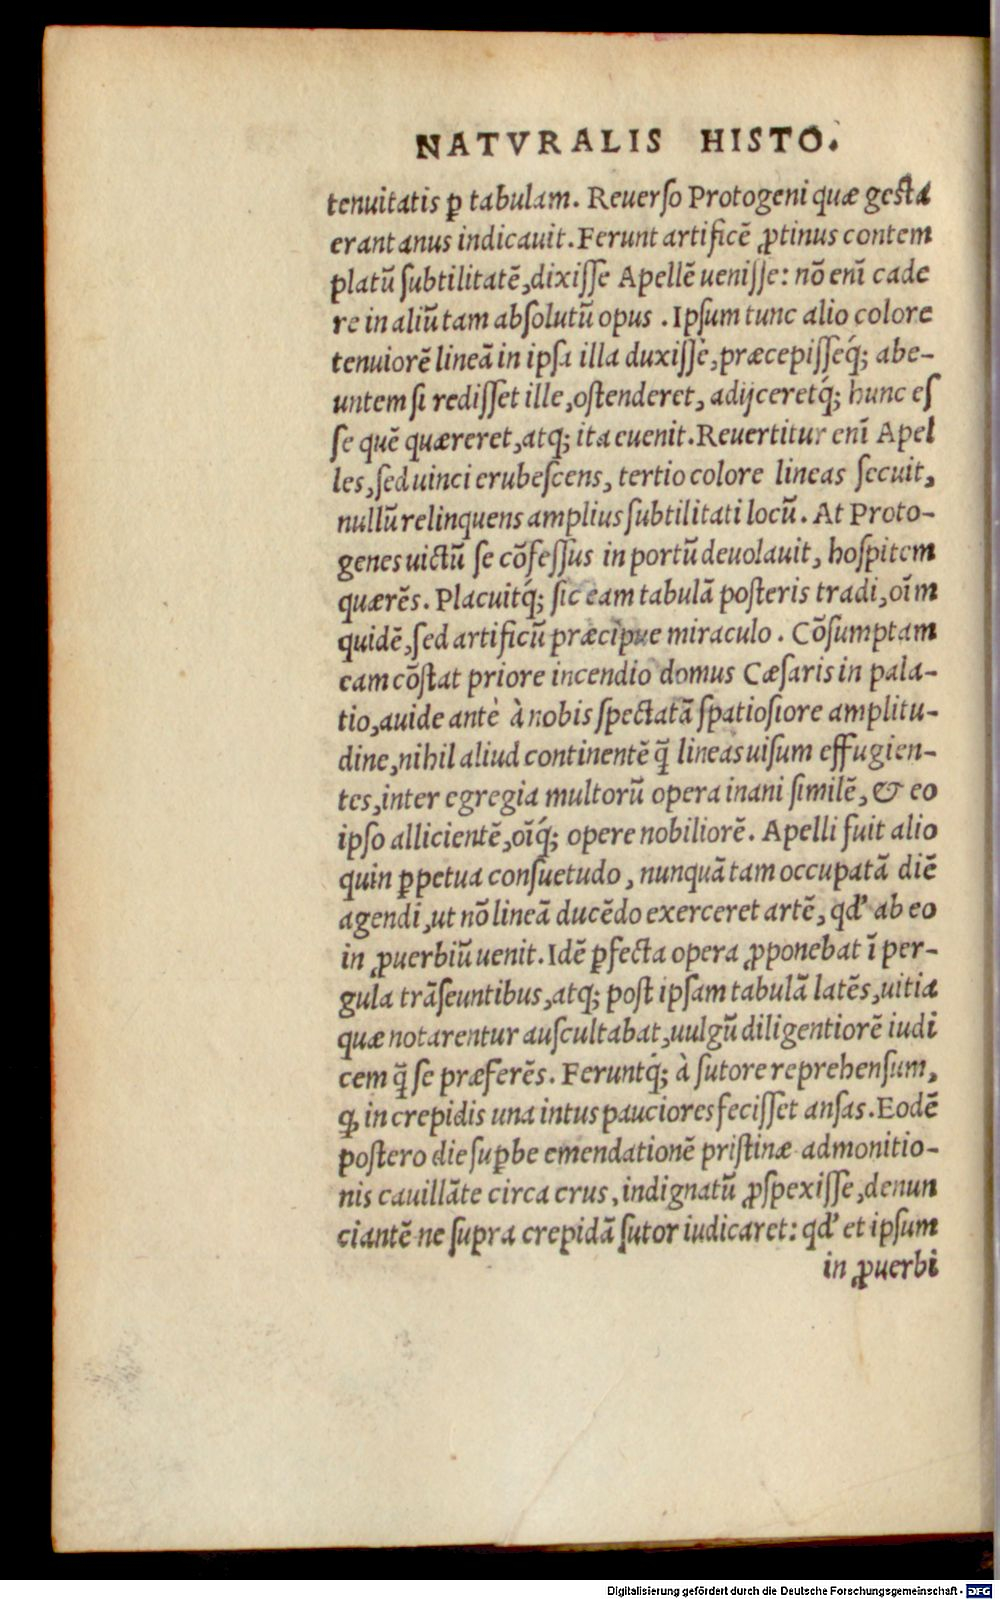 NATVRALIS HISTO.
tenuitatis ꝑ tabulam. Reuerſo Protogeni quæ geſta
erant anus indicauit. Ferunt artificē ꝓtinus contem
platū ſubtilitatē, dixiſſe Apellē ueniſſe: nō enī cade
re in aliū tam abſolutū opus . Ipſum tunc alio colore
tenuiorē lineā in ipſa illa duxiſſe, præcepiſſeq́; abe-
untem ſi rediſſet ille, oſtenderet, adijceretq́; hunc eſ
ſe quē quæreret, atq; ita euenit. Reuertitur enī Apel
les, ſed uinci erubeſcens, tertio colore lineas ſecuit,
nullū relinquens amplius ſubtilitati locū. At Proto-
genes uictū ſe cōfeſſus in portū deuolauit, hoſpitem
quærēs. Placuitq́; ſic eam tabulā poſteris tradi, oīm
quidē, ſed artificū præcipue miraculo . Cōſumptam
eam cōſtat priore incendio domus Cæſaris in pala-
tio, auide antè à nobis ſpectatā ſpatioſiore amplitu-
dine, nihil aliud continentē q̄ lineas uiſum effugien-
tes, inter egregia multorū opera inani ſimilē, & eo
ipſo allicientē, oīq́; opere nobiliorē. Apelli fuit alio
quin ꝑpetua conſuetudo, nunquā tam occupatā diē
agendi, ut nō lineā ducēdo exerceret artē, qd’ ab eo
in ꝓuerbiū uenit. Idē ꝑfecta opera ꝓponebat ī per-
gula trāſeuntibus, atq; poſt ipſam tabulā latēs, uitia
quæ notarentur auſcultabat, uulgū diligentiorē iudi
cem q̄ ſe præferēs. Feruntq́; à ſutore reprehenſum,
ꝙ in crepidis una intus pauciores feciſſet anſas. Eodē
poſtero die ſuꝑbe emendationē priſtinæ admonitio-
nis cauillāte circa crus, indignatū ꝓſpexiſſe, denun
ciantē ne ſupra crepidā ſutor iudicaret: qd’ et ipſum
in ꝓuerbi
Digitalisierung gefördert durch die Deutsche Forschungsgemeinschaft - DFG